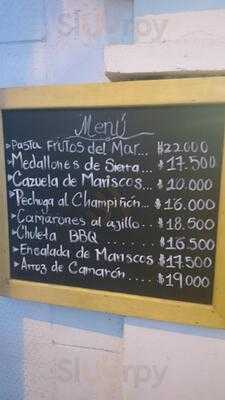 Sluurpy
Menú
▸Pasta Frutos del Mar... $22000
▸Medallones de Sierra... $17.500
▸Cazuela de Mariscos... $10.000
▸Pechuga al Champiñón... $16.000
▸Camarones al ajillo... $18.500
▸Chuleta BBQ ....... $16.500
▸Ensalada de Mariscos $17.500
▸Arroz de Camarón.... $19000
Sluurpy